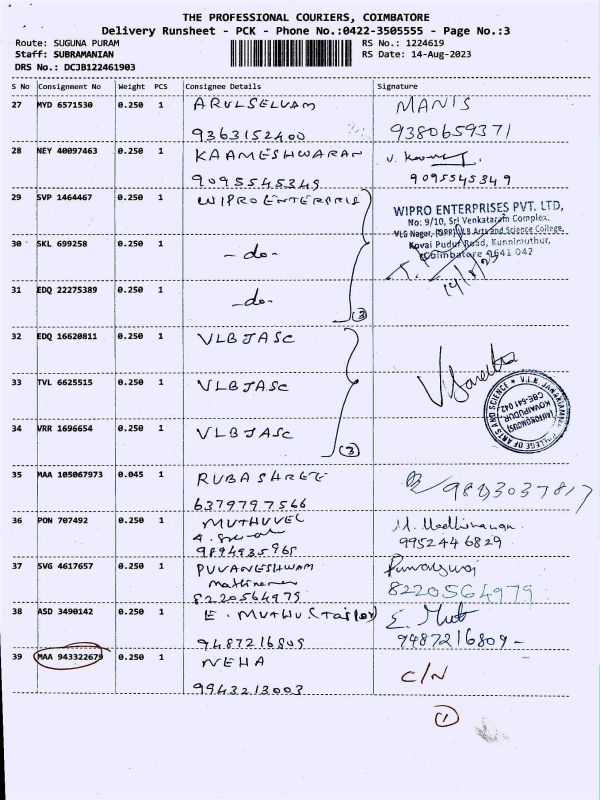 THE PROFESSIONAL COURIERS, COIMBATORE
Delivery Runsheet - PCK - Phone No.:0422-3505555 - Page No.:3
Route: SUGUNA PURAM RS No.: 1224619
Staff: SUBRAMANIAN RS Date: 14-Aug-2023
DRS No.: DCJB122461903
S No Consignment No Weight PCS Consignee Details Signature
27 MYD 6571530 0.250 1 ARULSELVAM MANIS
9363152400 9380659371
28 NEY 40097463 0.250 1 KAAMESHWARAN
9095545349 9095545349
29 SVP 1464467 0.250 1 WIPRO ENTERPRIS
WIPRO ENTERPRISES PVT. LTD,
No: 9/10, Sri Venkataram Complex,
VLB Nagar, (OPP) VLB Arts and Science College,
Kovai Pudur Road, Kunnimuthur,
Coimbatore 641 042
14/8/23
30 SKL 699258 0.250 1 -do-
31 EDQ 22275389 0.250 1 -do-
(3)
32 EDQ 16620811 0.250 1 VLBJASC
33 TVL 6625515 0.250 1 VLBJASC
34 VRR 1696654 0.250 1 VLBJASC
(3)
COLLEGE OF ARTS AND SCIENCE
(AUTONOMOUS)
KOVAIPUDUR
CBE-641 042
35 MAA 105067973 0.045 1 RUBASHREE
6379797566
36 PON 707492 0.250 1 MUTHUVEL
9952446829
37 SVG 4617657 0.250 1 PUVANESHWAM
8220564979 8220564979
38 ASD 3490142 0.250 1 E. MUTHU (Tailor) E. Mut
9487216809 9487216809-
39 MAA 943322679 0.250 1 NEHA C/N
9943213003
(1)